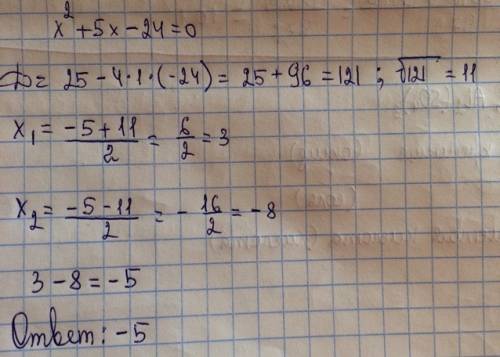 x² + 5x - 24 = 0
D = 25 - 4·1·(-24) = 25 + 96 = 121 ; √121 = 11
x₁ = (-5 + 11)/2 = 6/2 = 3
x₂ = (-5 - 11)/2 = - 16/2 = -8
3 - 8 = -5
Ответ: -5